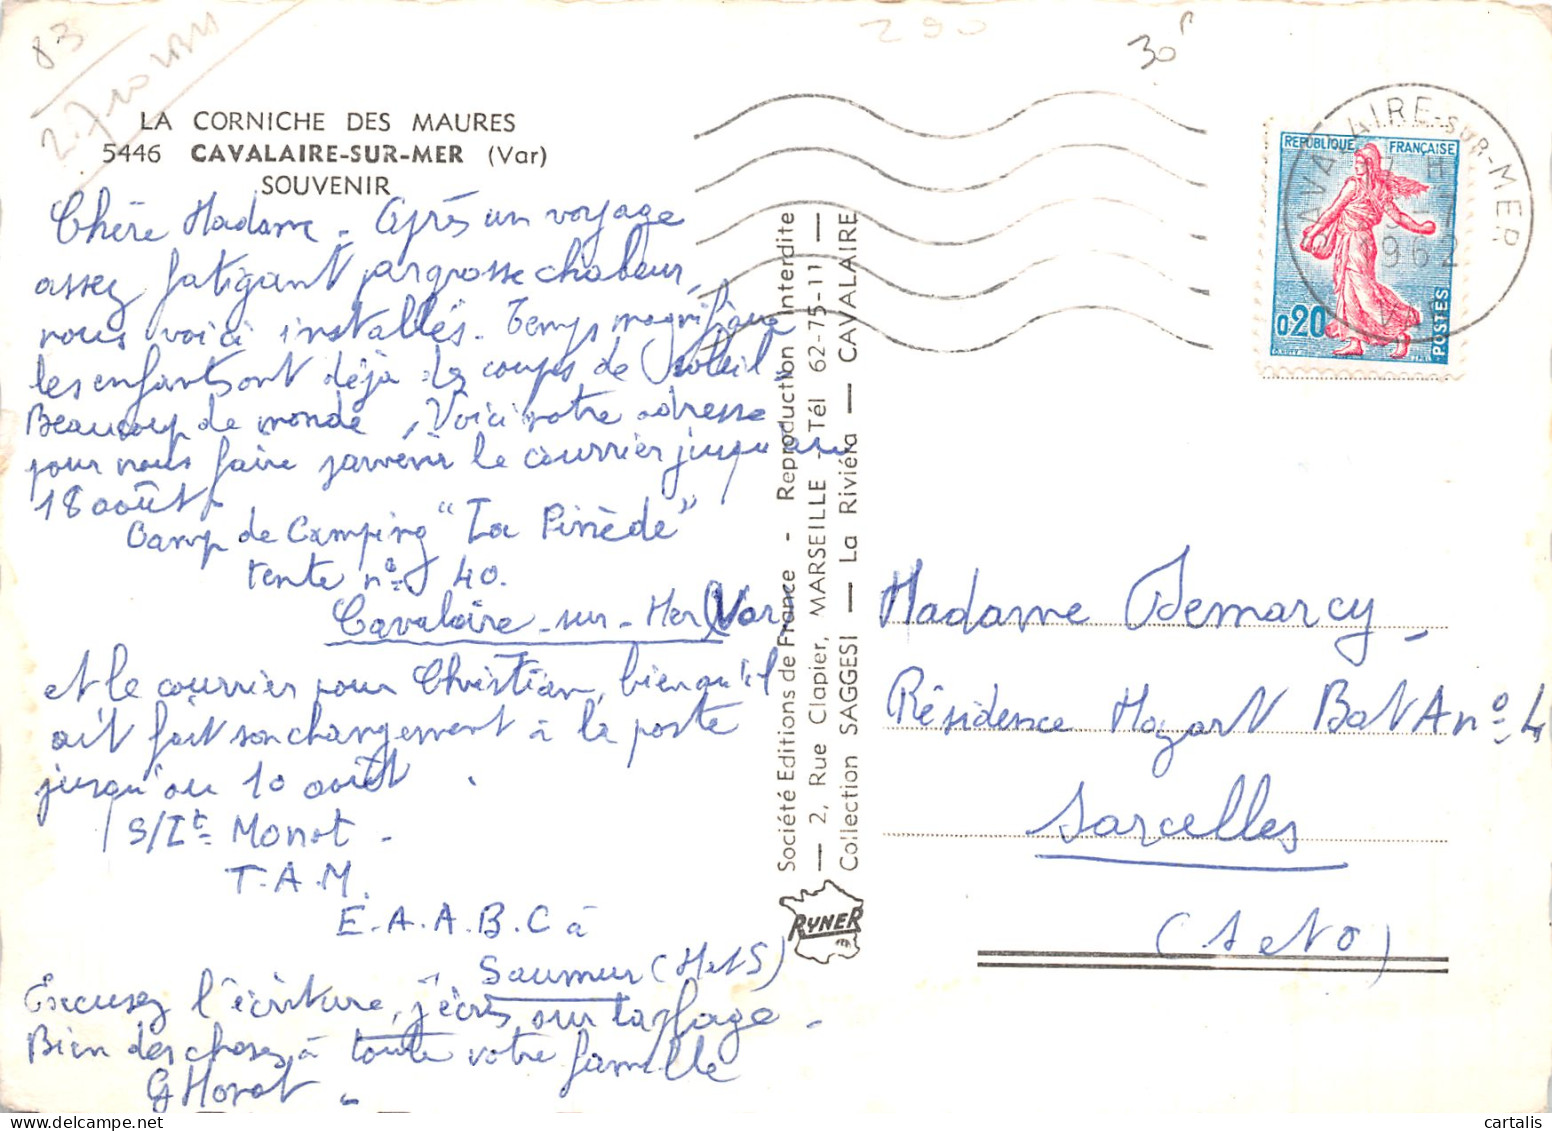 83
290
30F
LA CORNICHE DES MAURES
5446 CAVALAIRE-SUR-MER (Var)
SOUVENIR
Chère Madame - Après un voyage
assez fatigant par grosse chaleur,
nous voici installés. Temps magnifique
les enfants ont déjà des coups de soleil -
Beaucoup de monde, Voici notre adresse
pour nous faire parvenir le courrier jusqu'au
18 août.
Camp de Camping "La Pinède"
tente nº 40.
Cavalaire-sur-Mer (Var
et le courrier pour Christian, bien qu'il
ait fait son changement à la poste
jusqu'au 10 août.
S/Lt Monot -
T.A.M.
E.A.A.B.C à
Saumur (M et S)
Excusez l'écriture, j'écris sur la plage -
Bien des choses à toute votre famille
G Monot
Société Editions de France - Reproduction interdite
— 2, Rue Clapier, MARSEILLE - Tél 62-75-11 —
Collection SAGGESI — La Riviéra — CAVALAIRE
RYNER
CAVALAIRE-SUR-MER
17 H
1962
VAR
REPUBLIQUE FRANÇAISE
0,20
POSTES
Madame Demarcy -
Résidence Mozart Bat A nº 4
Sarcelles
(S et O)
cartalis